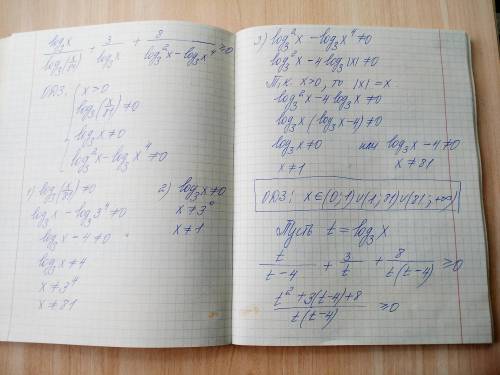 log₃x / log₃(x/81) + 3/log₃x + 8/(log₃²x − log₃x⁴) ≥ 0
ОДЗ: { x > 0
log₃(x/81) ≠ 0
log₃x ≠ 0
log₃²x − log₃x⁴ ≠ 0
1) log₃(x/81) ≠ 0
log₃x − log₃3⁴ ≠ 0
log₃x − 4 ≠ 0
log₃x ≠ 4
x ≠ 3⁴
x ≠ 81
2) log₃x ≠ 0
x ≠ 3⁰
x ≠ 1
3) log₃²x − log₃x⁴ ≠ 0
log₃²x − 4 log₃|x| ≠ 0
Т.к. x>0, то |x| = x
log₃²x − 4 log₃x ≠ 0
log₃x (log₃x − 4) ≠ 0
log₃x ≠ 0 или log₃x − 4 ≠ 0
x ≠ 1 x ≠ 81
ОДЗ: x ∈ (0; 1) ∪ (1; 81) ∪ (81; +∞)
Пусть t = log₃x
t/(t−4) + 3/t + 8/(t(t−4)) ≥ 0
(t² + 3(t−4) + 8)/(t(t−4)) ≥ 0